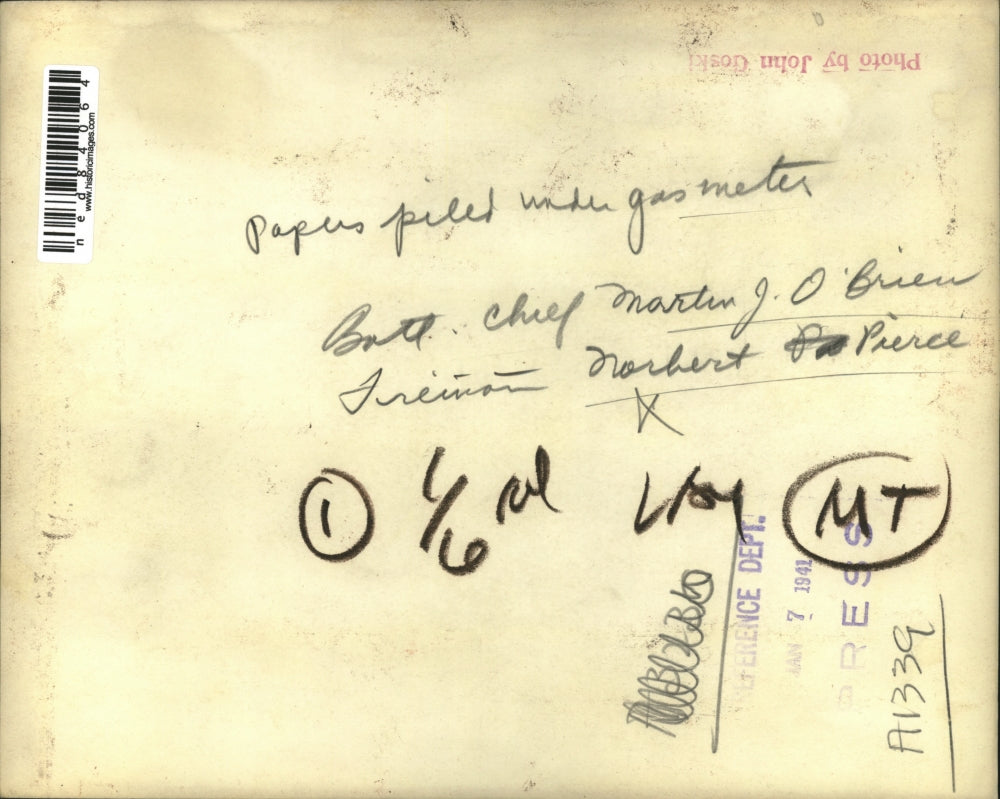 Photo by John Goski
ned84064
www.historicimages.com
Papers piled under gas meter
Batt. Chief Martin J. O'Brien
Fireman Norbert Pierce
X
1 1/6 MT
REFERENCE DEPT.
JAN 7 1941
PRESS
A1339